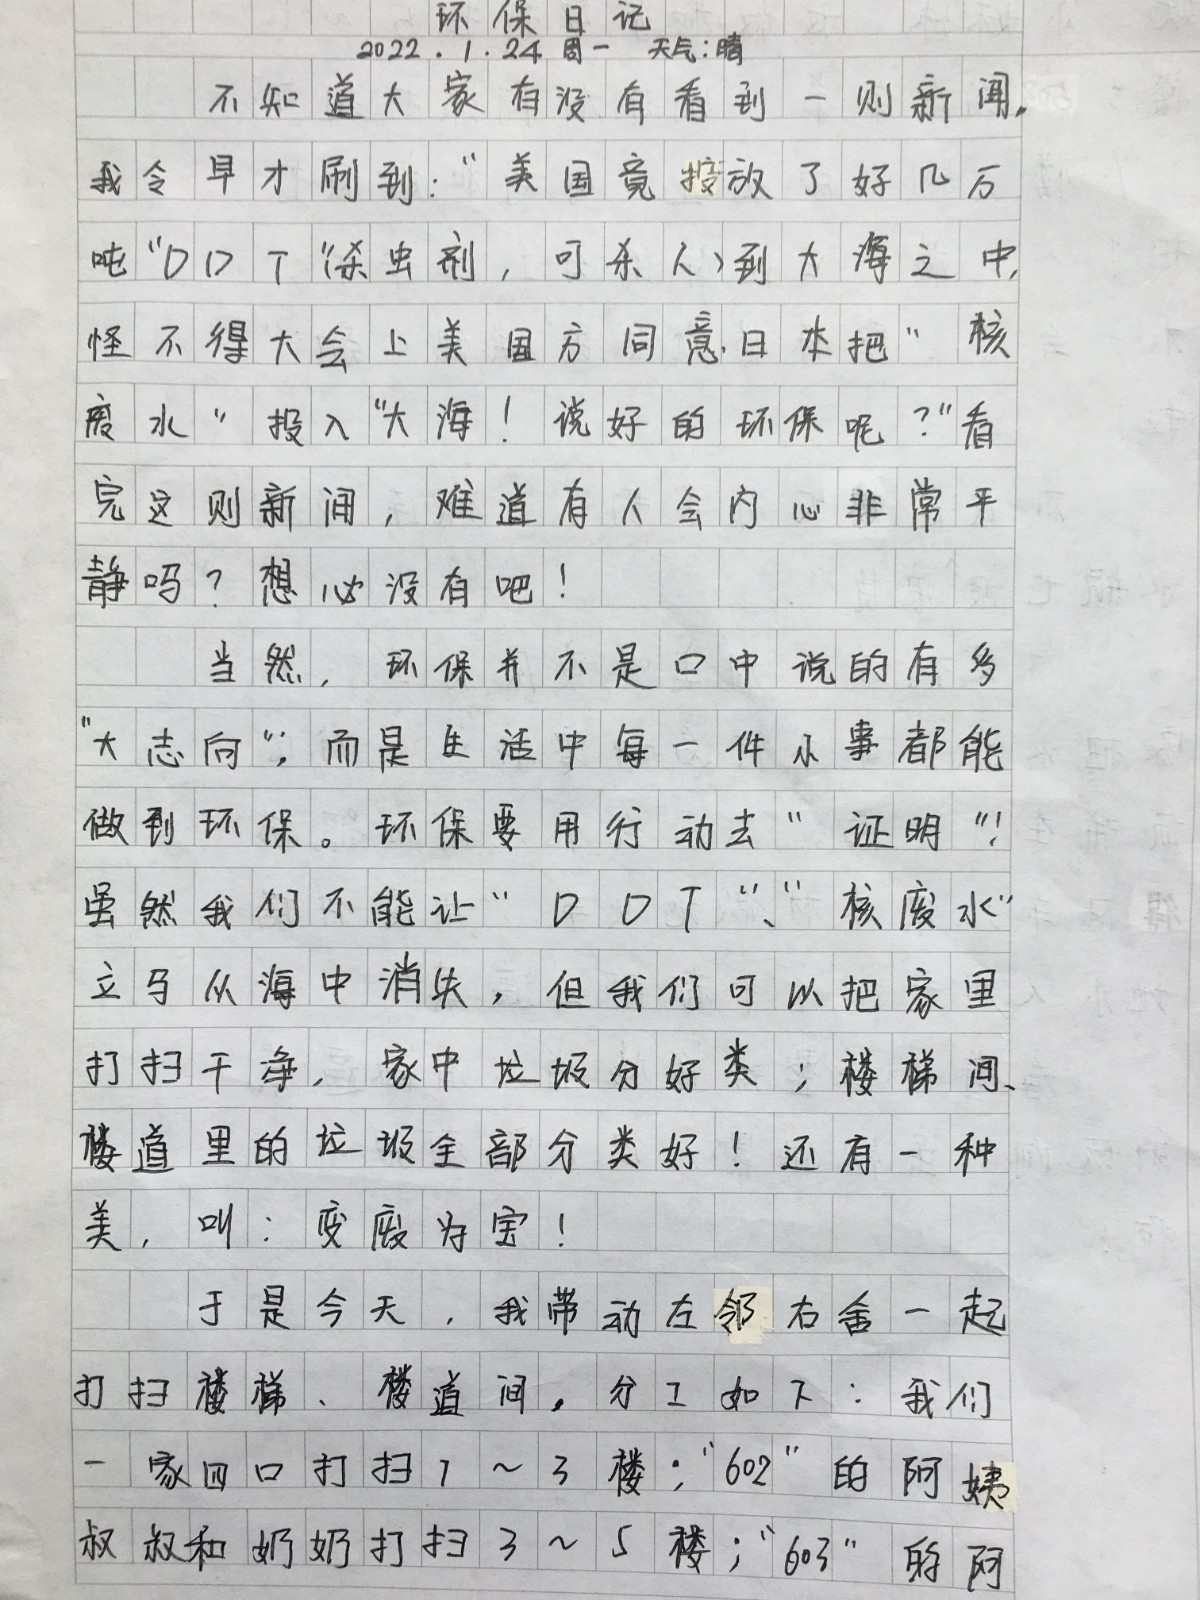 环保日记
2022.1.24 周一 天气:晴
不知道大家有没有看到一则新闻,
我令早才刷到:"美国竟投放了好几万
吨"DDT"(杀虫剂,可杀人)到大海之中,
怪不得大会上美国方同意日本把"核
废水"投入"大海!说好的环保呢?"看
完这则新闻,难道有人会内心非常平
静吗?想必没有吧!
当然,环保并不是口中说的有多
"大志向",而是生活中每一件小事都能
做到环保。环保要用行动去"证明"!
虽然我们不能让"DDT"、"核废水"
立马从海中消失,但我们可以把家里
打扫干净,家中垃圾分好类;楼梯间、
楼道里的垃圾全部分类好!还有一种
美,叫:变废为宝!
于是今天,我带动左邻右舍一起
打扫楼梯、楼道间,分工如下:我们
一家四口打扫1~3楼;"602"的阿姨
叔叔和奶奶打扫3~5楼;"603"的阿